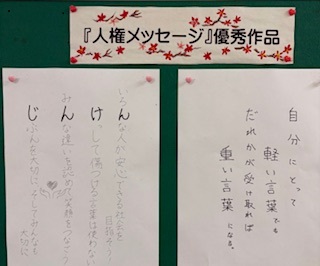 『人権メッセージ』優秀作品
じぶんを大切に、そしてみんなも
大切に
みんな違いを認め つなごう
けっして傷つける言葉は使わない
いろんな人が安心できる社会を
目指そう
自分にとって
軽い言葉でも
だれかが受け取れば
重い言葉になる。